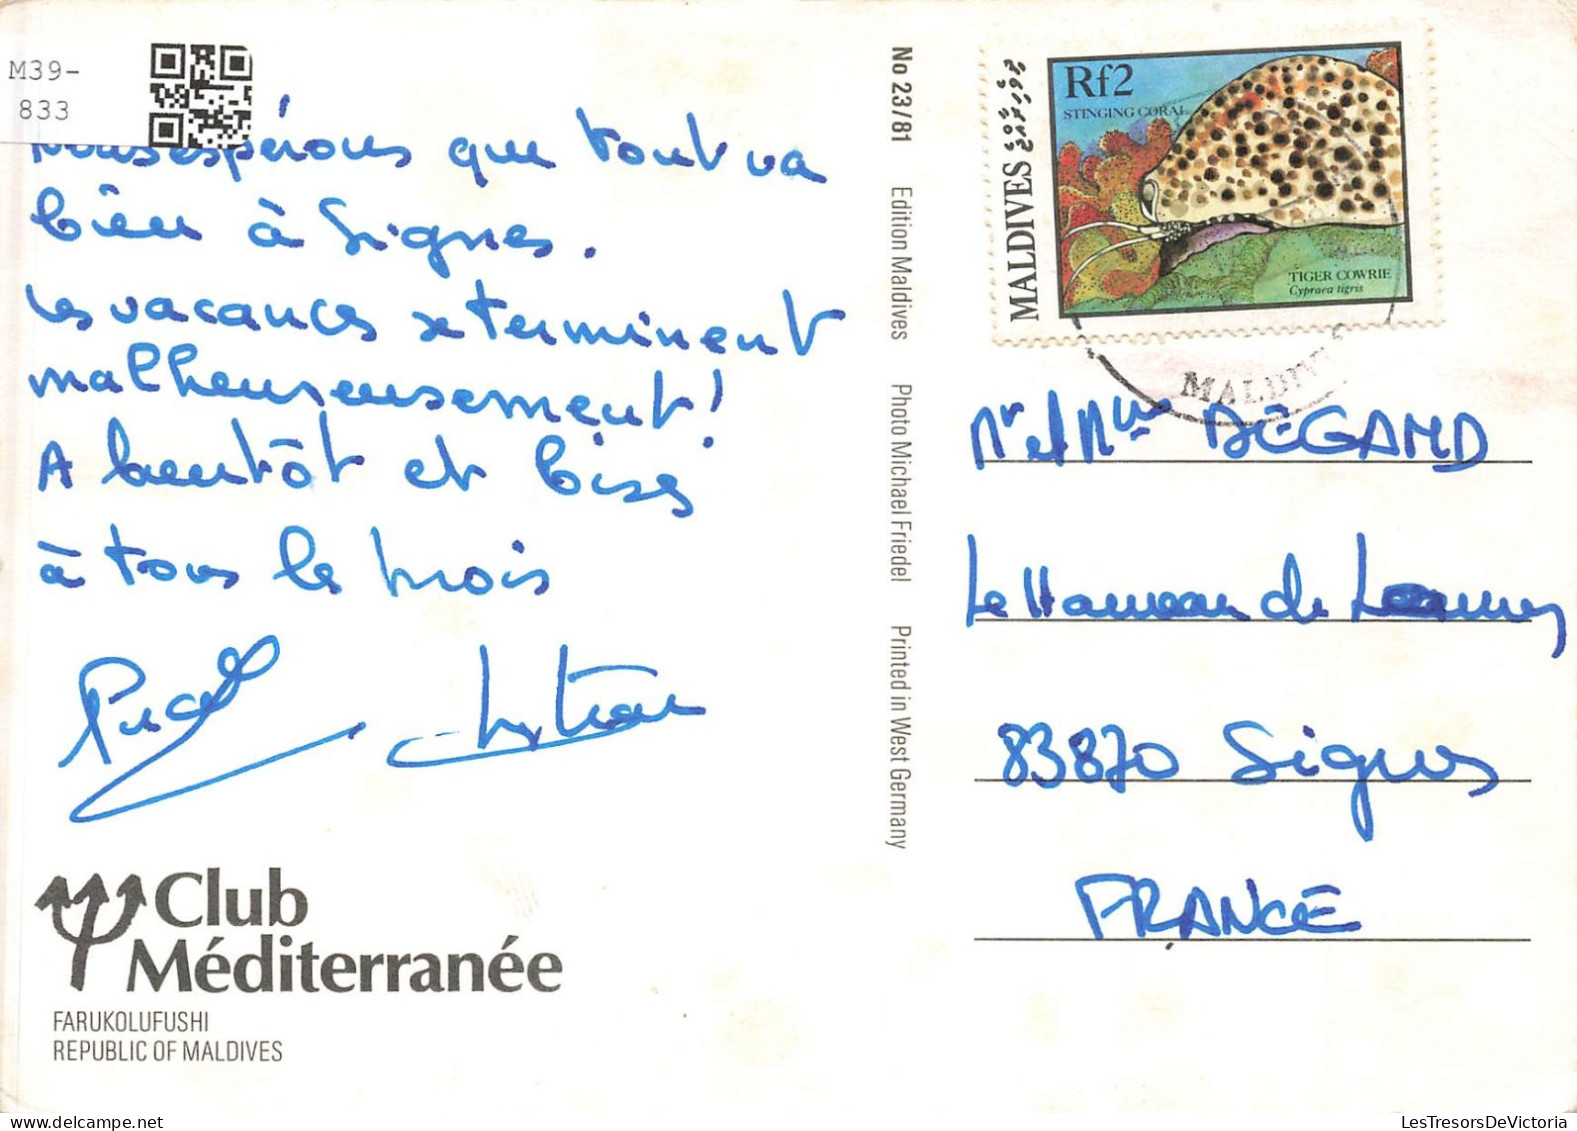 M39-
833
Nous espérons que tout va
bien à Signes.
Les vacances se terminent
malheureusement !
A bientôt et bises
à tous les trois
Club
Méditerranée
FARUKOLUFUSHI
REPUBLIC OF MALDIVES
No 23/81 Edition Maldives Photo Michael Friedel Printed in West Germany
MALDIVES
Rf2
STINGING CORAL
TIGER COWRIE
Cypraea tigris
MALDIVES
Mr et Mme DEGAND
Le Hameau de
83870 Signes
FRANCE
LesTresorsDeVictoria.com